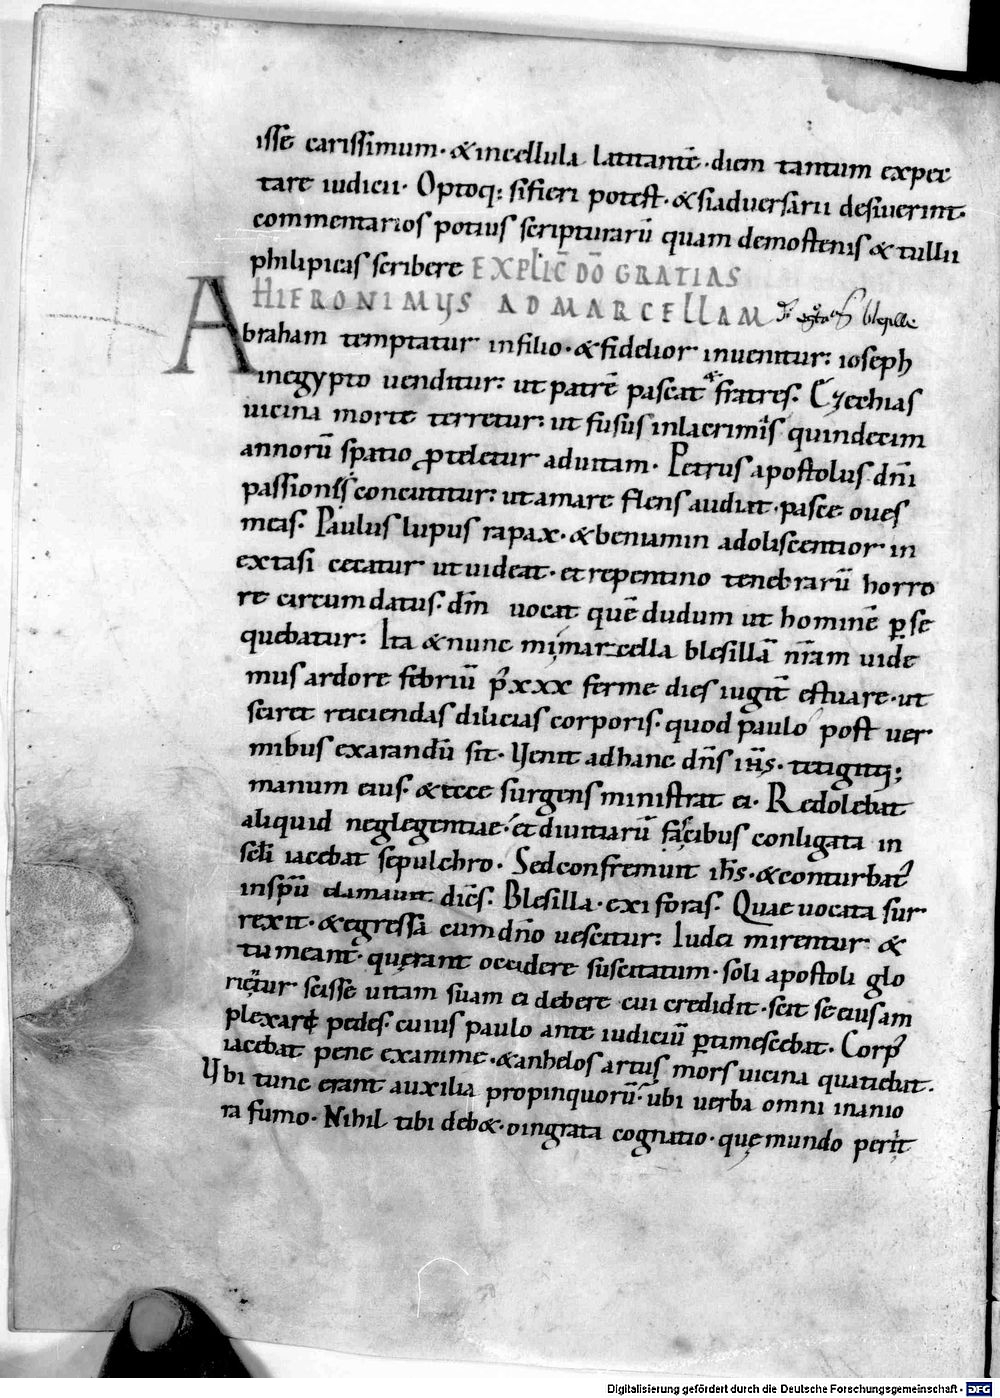 isse carissimum · & incellula latitantē · diem tantum expec
tare iudicii · Optoq; sifieri potest · & siadversarii desiuerint ·
commentarios potius scripturarū quam demostenis & tullii
philipicas scribere EXPLIC̄ DŌ GRATIAS
HIERONIMYS AD MARCELLAM blesille
Abraham temptatur infilio · & fidelior inuenitur: ioseph
inegypto uenditur: ut patrē pascat & fratres. Ezechias
uicina morte terretur: ut fusus inlacrimis quindecim
annorū spatio proteletur aduitam · Petrus apostolus dn̄i
passionis concutitur: ut amare flens audiat · pasce oues
meas. Paulus lupus rapax · & beniamin adoliscentior in
extasi cecatur ut uideat · et repentino tenebrarū horro
re circumdatus · dn̄m uocat quē dudum ut hominē p̱se
quebatur: Ita & nunc mi marcella blesillā nr̄am uidi
mus ardore febriū p̄ xxx ferme dies iugit̄ estuare · ut
sciret reiciendas dilicias corporis · quod paulo post uer
mibus exarandū sit · Venit adhanc dn̄s ih̄s · tetigitq;
manum eius · & ecce surgens ministrat ei · Redolebat
aliquid neglegentiae · et diuitiarū fascibus conligata in
sęc̄li iacebat sepulchro · Sed confremuit ih̄s · & conturbat᷒
inspū clamauit dic̄s. Blesilla · exi foras. Quae uocata sur
rexit · & egressa cum dn̄o uescitur: Iudei mirentur &
tumeant · quęrant occidere suscitatum · soli apostoli glo
rientur scisse uitam suam ei debere cui credidit · scit se eius am
plexari pedes · cuius paulo ante iudiciū p̱timescebat · Corp᷒
iacebat pene exanime · & anhelos artus mors uicina quatiebat ·
Vbi tunc erant auxilia propinquorū · ubi uerba omni inanio
ra fumo · Nihil tibi deb& · o ingrata cognatio · quę mundo periit
Digitalisierung gefördert durch die Deutsche Forschungsgemeinschaft - DFG